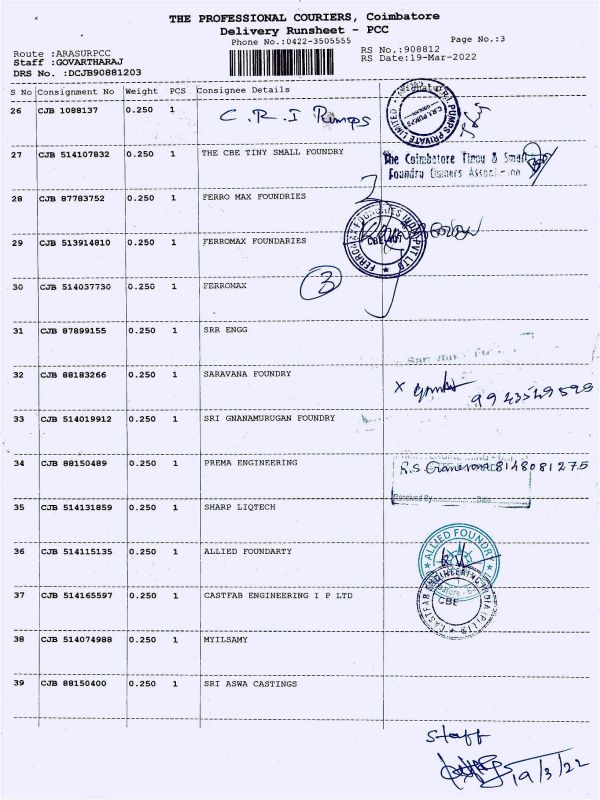 THE PROFESSIONAL COURIERS, Coimbatore
Delivery Runsheet - PCC
Phone No.:0422-3505555
Page No.:3
Route :ARASURPCC
RS No.:908812
Staff :GOVARTHARAJ
RS Date:19-Mar-2022
DRS No. :DCJB90881203
S No Consignment No Weight PCS Consignee Details Signature
26 CJB 1088137 0.250 1 C.R.I Pumps
27 CJB 514107832 0.250 1 THE CBE TINY SMALL FOUNDRY
The Coimbatore Tiny & Small
Foundry Owners Association
28 CJB 87783752 0.250 1 FERRO MAX FOUNDRIES
29 CJB 513914810 0.250 1 FERROMAX FOUNDARIES
FERROMAX FOUNDRIES INDIA PVT LTD
30 CJB 514037730 0.250 1 FERROMAX
3
31 CJB 87899155 0.250 1 SRR ENGG
32 CJB 88183266 0.250 1 SARAVANA FOUNDRY
33 CJB 514019912 0.250 1 SRI GNANAMURUGAN FOUNDRY
34 CJB 88150489 0.250 1 PREMA ENGINEERING
8148081275
35 CJB 514131859 0.250 1 SHARP LIQTECH
36 CJB 514115135 0.250 1 ALLIED FOUNDARTY
ALLIED FOUNDRY
37 CJB 514165597 0.250 1 CASTFAB ENGINEERING I P LTD
CASTFAB ENGINEERING INDIA (P) LTD
CBE
38 CJB 514074988 0.250 1 MYILSAMY
39 CJB 88150400 0.250 1 SRI ASWA CASTINGS
Staff
19/3/22